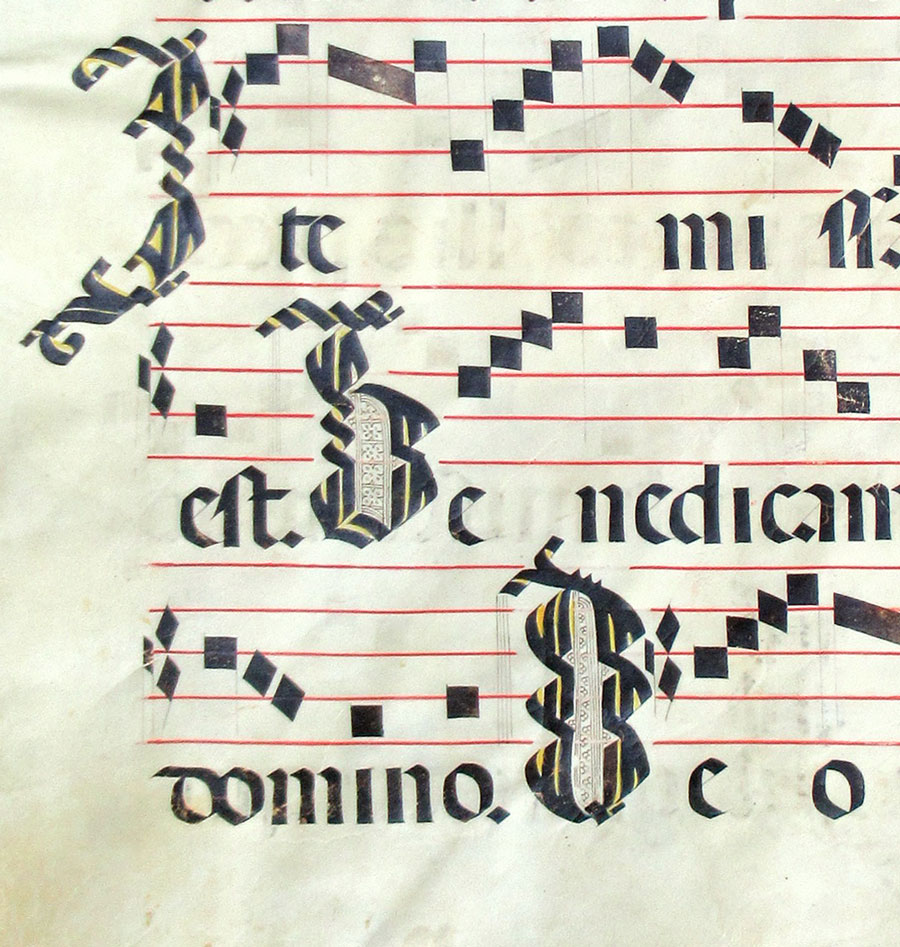 I te mi ſſ
eſt. B e nedicam
domino. D e o